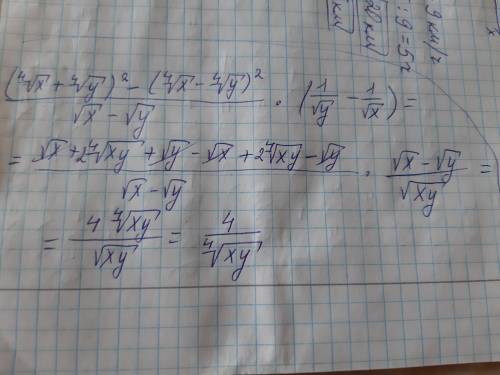 9 км/ч
: 9 = 5 ч
км
км
((∜x + ∜y)² − (∜x − ∜y)²) / (√x − √y) · (1/√y − 1/√x) =
= (√x + 2∜xy + √y − √x + 2∜xy − √y) / (√x − √y) · (√x − √y) / √xy =
= 4∜xy / √xy = 4 / ∜xy